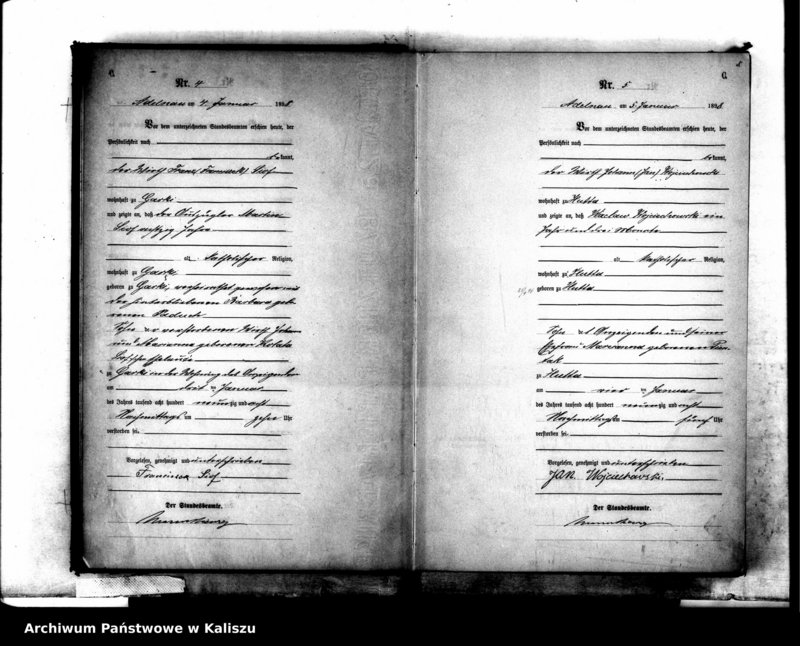 C.
Nr. 4
Adelnau am 4. Januar 1898
Vor dem unterzeichneten Standesbeamten erschien heute, der
Persönlichkeit nach
bekannt,
der Wirth Franz
wohnhaft zu Garki
und zeigte an, daß der Auszügler Martin
achtzig Jahre
katholischer Religion,
wohnhaft zu Garki
geboren zu Garki, verheirathet gewesen mit
der hinterbliebenen Barbara gebo
renen
Sohn der verstorbenen Wirth Johann
und Marianna geborenen
zu Garki in der Wohnung des Anzeigenden
am drei ten Januar
des Jahres tausend acht hundert neunzig und acht
Nachmittags um zehn Uhr
verstorben sei.
Vorgelesen, genehmigt und unterschrieben
Der Standesbeamte.
C.
Nr. 5
Adelnau am 5. Januar 1898
Vor dem unterzeichneten Standesbeamten erschien heute, der
Persönlichkeit nach
bekannt,
der Wirth Johann (Jan) Wojciechowski
wohnhaft zu Hutta
und zeigte an, daß Waclaw Wojciechowski ein
Jahr und drei Monate
katholischer Religion,
wohnhaft zu Hutta
geboren zu Hutta
Sohn des Anzeigenden und seiner
Ehefrau Marianna geborenen
zu Hutta
am vier ten Januar
des Jahres tausend acht hundert neunzig und acht
Nachmittags um fünf Uhr
verstorben sei.
Vorgelesen, genehmigt und unterschrieben
JAN Wojciechowski.
Der Standesbeamte.
Archiwum Państwowe w Kaliszu